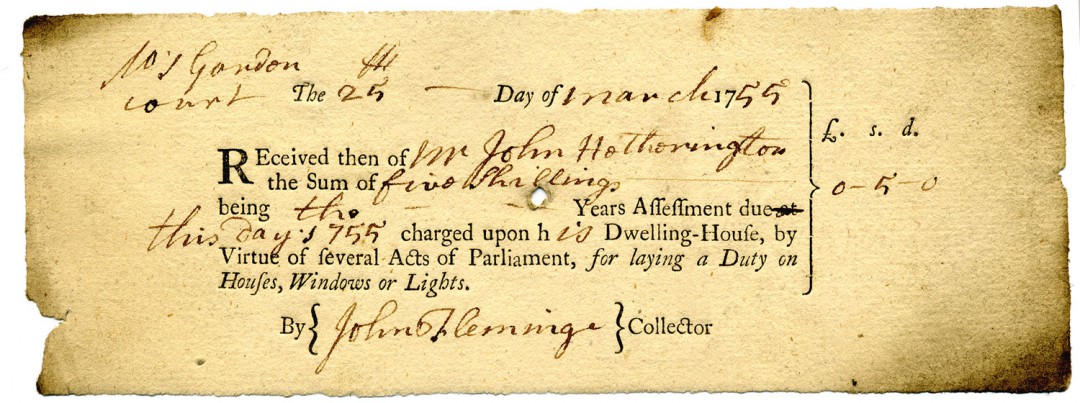 No's Gordon
court The 25th — Day of march 1755
£. s. d.
REceived then of Mr John Hetherington
the Sum of five Shillings 0-5-0
being the Years Aſſeſſment due at
this day 1755 charged upon h is Dwelling-Houſe, by
Virtue of ſeveral Acts of Parliament, for laying a Duty on
Houſes, Windows or Lights.
By { John Fleminge } Collector